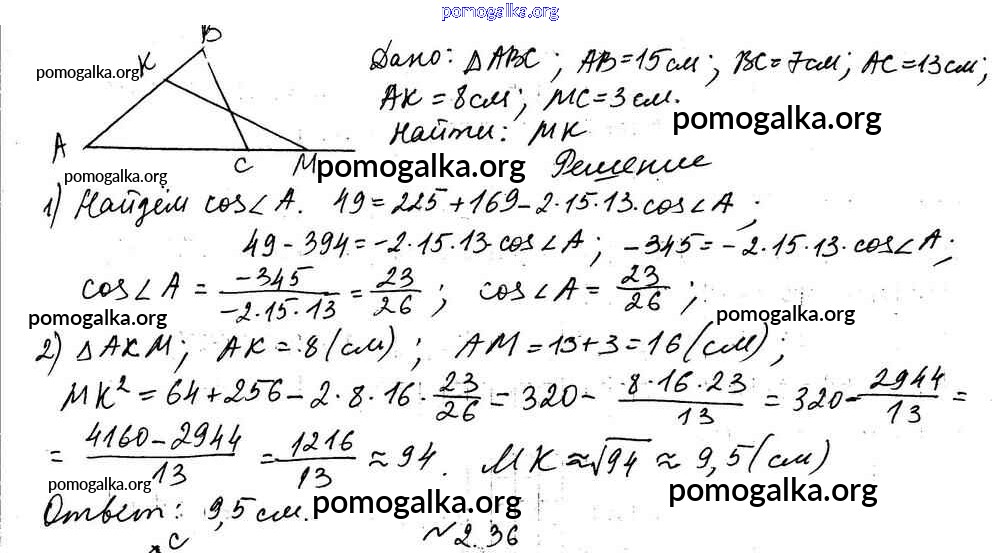 pomogalka.org
B
K
pomogalka.org
A
C
M
pomogalka.org
pomogalka.org
Дано: △ABC; AB=15см; BC=7см; AC=13см;
AK=8см; MC=3см.
pomogalka.org
Найти: MK
Решение
1) Найдём cos∠A. 49=225+169-2·15·13·cos∠A;
49-394=-2·15·13·cos∠A; -345=-2·15·13·cos∠A;
cos∠A = -345/-2·15·13 = 23/26; cos∠A = 23/26;
pomogalka.org
pomogalka.org
2) △AKM; AK=8(см); AM=13+3=16(см);
MK²=64+256-2·8·16·23/26=320-8·16·23/13=320-2944/13=
=4160-2944/13=1216/13≈94. MK≈√94≈9,5(см)
pomogalka.org
pomogalka.org
pomogalka.org
Ответ: 9,5см.
№2.36
C